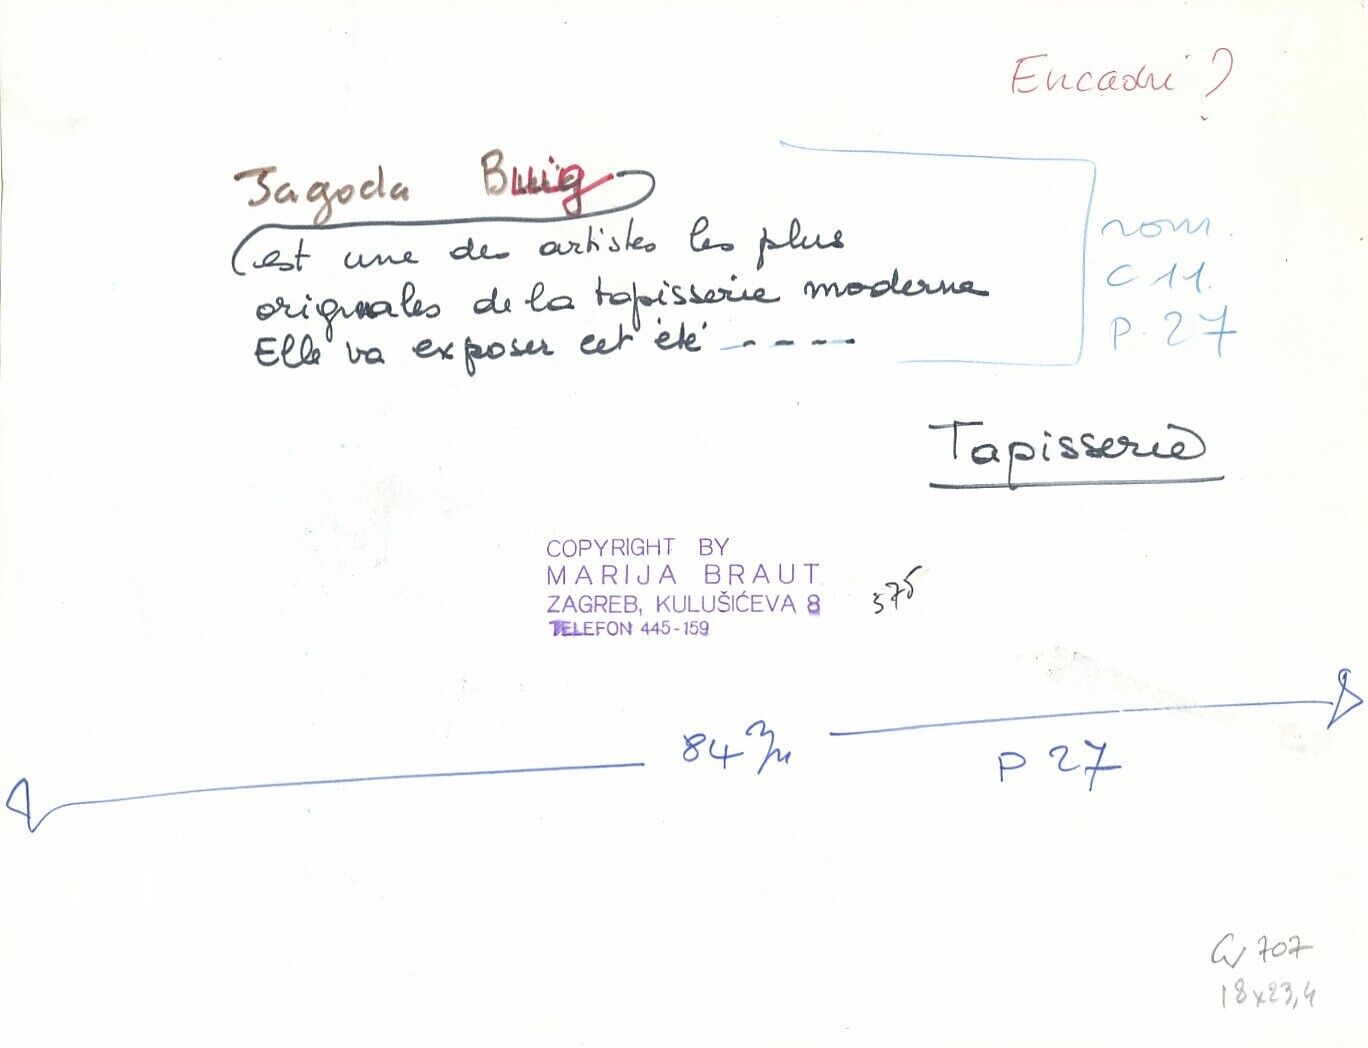 Encadré ?
Jagoda Buig
est une des artistes les plus
originales de la tapisserie moderne
Elle va exposer cet été - - - -
rom.
C 11.
P. 27
Tapisserie
COPYRIGHT BY
MARIJA BRAUT
ZAGREB, KULUŠIĆEVA 8
TELEFON 445-159
575
84
P 27
707
18x23,4